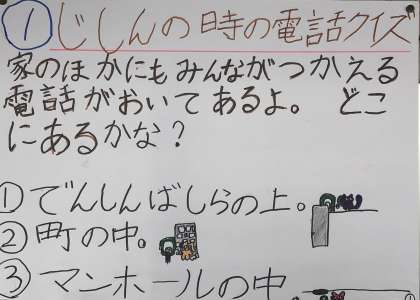 ①じしんの時の電話クイズ
家のほかにもみんながつかえる
電話がおいてあるよ。 どこ
にあるかな?
①でんしんばしらの上。
②町の中。
③マンホールの中